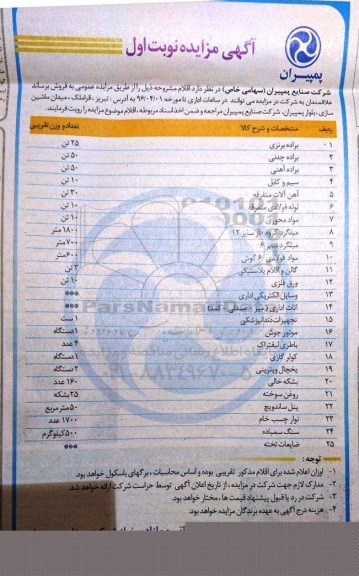 آگهی مزایده نوبت اول
پمپیران
شرکت صنایع پمپیران (سهامی خاص) در نظر دارد اقلام مشروحه ذیل را از طریق مزایده عمومی به فروش برساند
علاقمندان به شرکت در مزایده می توانند در ساعات اداری تا مورخه ۹۶/۰۴/۰۱ به آدرس: تبریز، قراملک، میدان ماشین
سازی، بلوار پمپیران، شرکت صنایع پمپیران مراجعه و ضمن اخذ اسناد مربوطه، اقلام موضوع مزایده را رویت فرمایند.
ردیف مشخصات و شرح کالا تعداد و وزن تقریبی
۱ براده برنزی ۲۵ تن
۲ براده چدنی ۵۰ تن
۳ براده آهنی ۵۰ تن
۴ سیم و کابل ۱۰ تن
۵ آهن آلات متفرقه ۳۰ تن
۶ لوله فولادی متفرقه ۱۰ تن
۷ مواد محوری ۱۰ تن
۸ میلگرد کروم دار سایز ۱۲ ۱۸۰۰ متر
۹ میلگرد سایز ۶ ۷۰۰ متر
۱۰ مواد فولادی ۶ گوش ۶۰۰ متر
۱۱ گالن و اقلام پلاستیکی ۳ تن
۱۲ ورق فلزی ۱۰ تن
۱۳ وسایل الکتریکی اداری ***
۱۴ اثاث اداری (میز - صندلی - کمد) ***
۱۵ تجهیزات دندانپزشکی ۱ ست
۱۶ موتور جوش ۱ دستگاه
۱۷ باطری لیفتراک ۴ عدد
۱۸ کولر گازی ۱ دستگاه
۱۹ یخچال ویترینی ۲ دستگاه
۲۰ بشکه خالی ۱۶۰ عدد
۲۱ روغن سوخته ۲۵ بشکه
۲۲ پنل ساندویچ ۵۰ متر مربع
۲۳ نوار چسب خام ۱۷۰۰ عدد
۲۴ سنگ سمباده ۵۰۰ کیلوگرم
۲۵ ضایعات تخته ***
توجه:
۱- اوزان اعلام شده برای اقلام مذکور تقریبی بوده و اساس محاسبات، برگهای باسکول خواهد بود.
۲- مدارک لازم جهت شرکت در مزایده، از تاریخ اعلان آگهی توسط حراست شرکت ارائه خواهد شد.
۳- شرکت در رد یا قبول پیشنهاد قیمت ها، مختار خواهد بود.
۴- هزینه درج آگهی به عهده برندگان مزایده خواهد بود.
ParsNamadData
۰۲۱-۸۸۳۴۹۶۷۰-۵